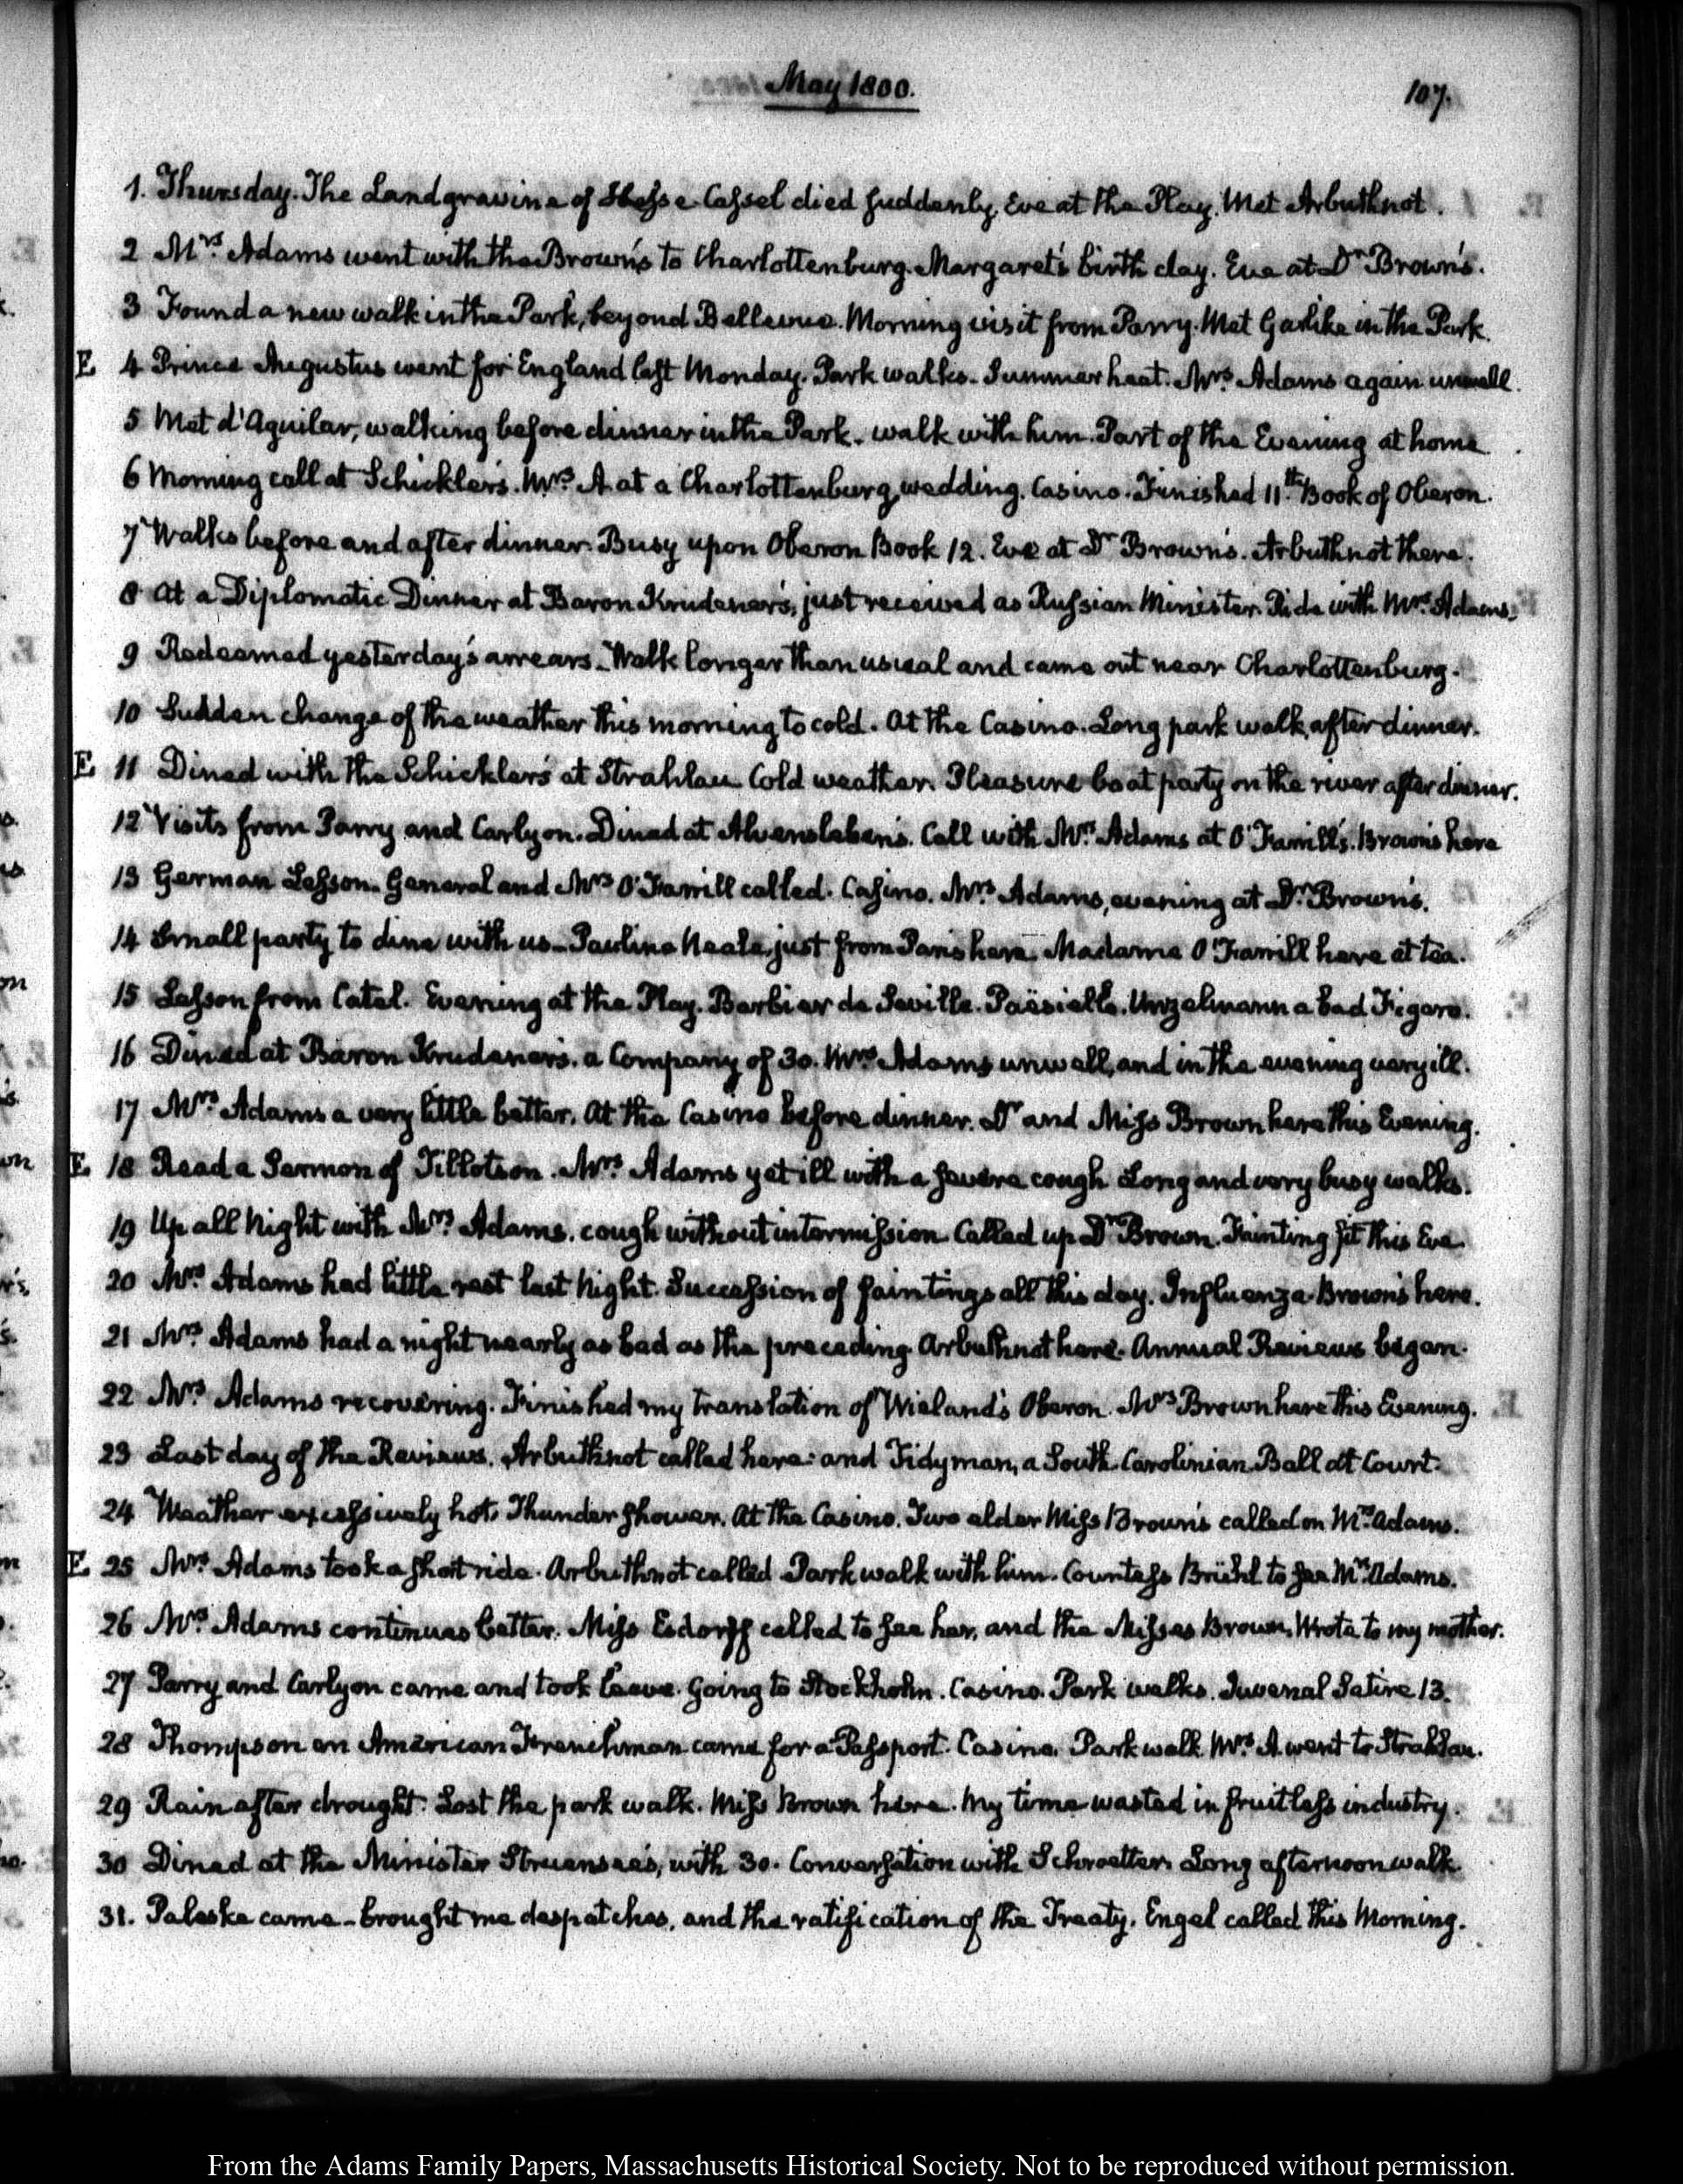 May 1800.
107.
1. Thursday. The Landgravine of Hesse Cassel died suddenly. Eve at the Play. Met Arbuthnot.
2 Mrs. Adams went with the Brown's to Charlottenburg. Margaret's birth day. Eve at Dr Brown's.
3 Found a new walk in the Park, beyond Bellevue. Morning visit from Parry. Met Garlike in the Park.
E 4 Prince Augustus went for England last Monday. Park walks. Summer heat. Mrs. Adams again unwell.
5 Met d'Aguilar, walking before dinner in the Park. walk with him. Part of the Evening at home
6 Morning call at Schickler's. Mrs. A. at a Charlottenburg wedding. Casino. Finished 11th. Book of Oberon.
7 Walks before and after dinner. Busy upon Oberon Book 12. Eve at Dr Brown's. Arbuthnot there.
8 At a Diplomatic Dinner at Baron Krudener's, just received as Russian Minister. Ride with Mrs. Adams.
9 Redeemed yesterday's arrears. Walk longer than usual and came out near Charlottenburg.
10 Sudden change of the weather this morning to cold. At the Casino. Long park walk, after dinner.
E 11 Dined with the Schickler's at Strahlau Cold weather. Pleasure boat party on the river after dinner.
12 Visits from Parry and Carlyon. Dined at Alvensleben's. Call with Mrs. Adams at O'Farrill's. Brown's here
13 German Lesson. General and Mrs O'Farrill called. Casino. Mrs. Adams, evening at Dr. Brown's.
14 Small party to dine with us. Pauline Neale, just from Paris here. Madame O'Farrill here at tea.
15 Lesson from Catel. Evening at the Play. Barbier de Seville. Paësiello. Unzelmann a bad Figaro.
16 Dined at Baron Krudener's. a Company of 30. Mrs Adams unwell, and in the evening very ill.
17 Mrs. Adams a very little better. At the Casino before dinner. Dr and Miss Brown here this Evening.
E 18 Read a Sermon of Tillotson. Mrs. Adams yet ill with a severe cough Long and very busy walks.
19 Up all Night with Mrs. Adams. cough without intermission. Called up Dr Brown. Fainting fit this Eve
20 Mrs. Adams had little rest last Night. Succession of faintings all this day. Influenza. Brown's here.
21 Mrs. Adams had a night nearly as bad as the preceding. Arbuthnot here. Annual Reviews began.
22 Mrs. Adams recovering. Finished my translation of Wieland's Oberon. Mrs Brown here this Evening.
23 Last day of the Reviews. Arbuthnot called here: and Tidyman, a South Carolinian. Ball at Court.
24 Weather excessively hot. Thunder shower. At the Casino. Two elder Miss Brown's called on Mrs. Adams.
E 25 Mrs. Adams took a short ride. Arbuthnot called Park walk with him. Countess Brühl to see Mrs. Adams.
26 Mrs. Adams continues better. Miss Esdorff called to see her, and the Misses Brown. Wrote to my mother.
27 Parry and Carlyon came and took leave. Going to Stockholm. Casino. Park walks. Juvenal Satire 13.
28 Thompson an American Frenchman came for a Passport. Casino. Park walk Mrs. A. went to Strahlau.
29 Rain after drought. Lost the park walk. Miss Brown here. My time wasted in fruitless industry.
30 Dined at the Minister Struensee's, with 30. Conversation with Schroetter. Long afternoon walk.
31. Paleske came - brought me despatches, and the ratification of the Treaty. Engel called this Morning.
From the Adams Family Papers, Massachusetts Historical Society. Not to be reproduced without permission.